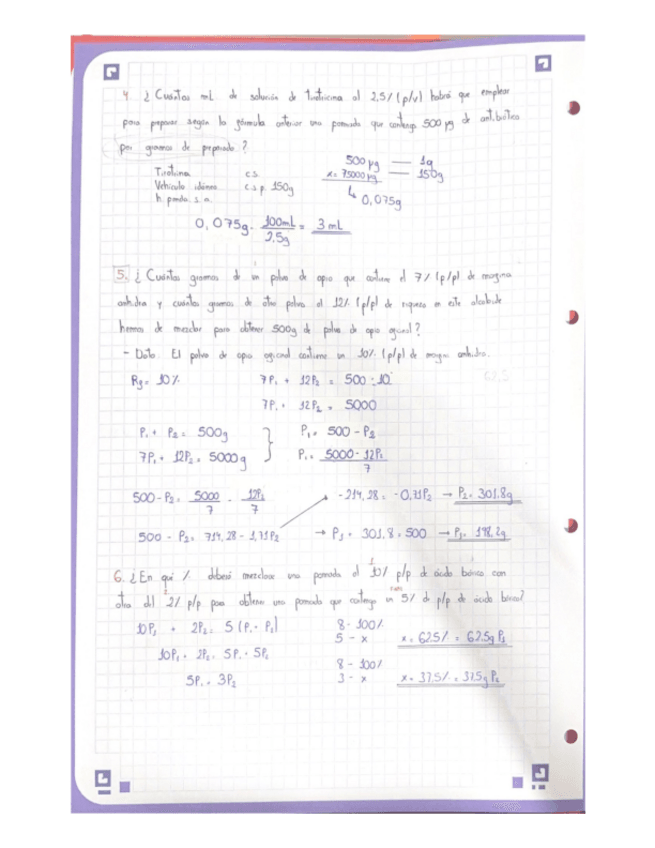 4 ¿Cuántos mL de solución de Tirotricina al 2,5% (p/v) habrá que emplear
para preparar según la fórmula anterior una pomada que contenga 500 µg de antibiótico
por gramos de preparado?
500 µg — 1g
Tirotricina c.s.
x = 75000 µg — 150g
Vehículo idóneo c.s.p. 150g
↳ 0,075g
h. pomada s.a.
0,075g · 100mL / 2,5g = 3 mL
5. ¿Cuántos gramos de un polvo de opio que contiene el 7% (p/p) de morfina
anhidra y cuántos gramos de otro polvo al 12% (p/p) de riqueza en este alcaloide
hemos de mezclar para obtener 500g de polvo de opio oficinal?
- Dato. El polvo de opio oficinal contiene un 10% (p/p) de morfina anhidra.
Rf = 10% 7P₁ + 12P₂ = 500 · 10
7P₁ + 12P₂ = 5000
P₁ + P₂ = 500g } P₁ = 500 - P₂
7P₁ + 12P₂ = 5000g P₁ = 5000 - 12P₂ / 7
500 - P₂ = 5000/7 - 12P₂/7 -214,28 = -0,71P₂ → P₂ = 301,8g
500 - P₂ = 714,28 - 1,71P₂ → P₁ + 301,8 = 500 → P₁ = 198,2g
6. ¿En qué % deberá mezclarse una pomada al 10% p/p de ácido bórico con
otra del 2% p/p para obtener una pomada que contenga un 5% de p/p de ácido bórico?
10P₁ + 2P₂ = 5(P₁ + P₂) 8 - 100%
5 - x x = 62.5% = 62.5g P₁
10P₁ + 2P₂ = 5P₁ + 5P₂
8 - 100%
5P₁ = 3P₂ 3 - x x = 37.5% = 37.5g P₂